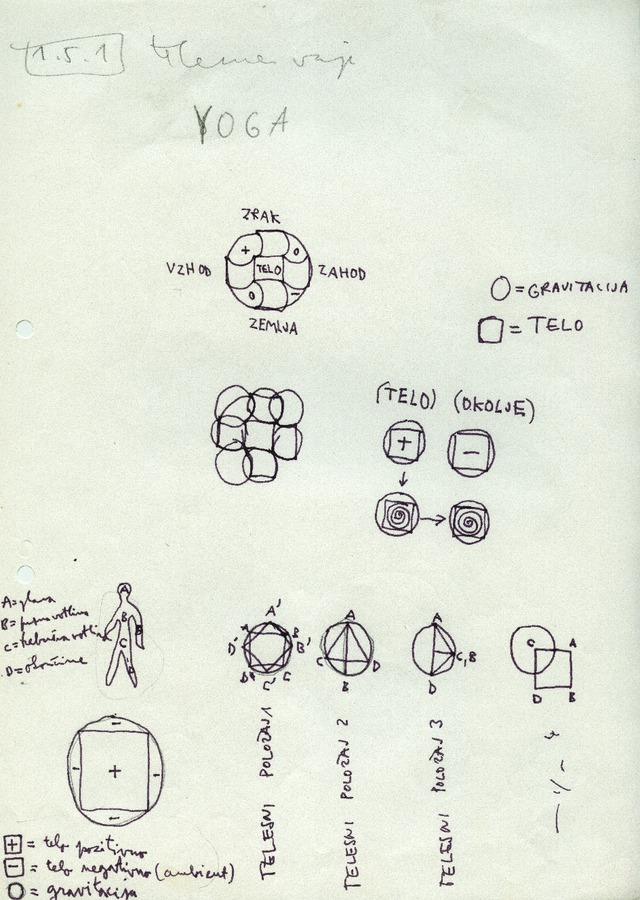 1.5.1 telesne vaje
YOGA
ZRAK
+ O
VZHOD TELO ZAHOD
O −
ZEMLJA
O = GRAVITACIJA
= TELO
(TELO) (OKOLJE)
+ −
A = glava
B = prsna votlina
C = trebušna votlina
D = okončine
A
B
B
C
D
A'
A B
D' B'
D C
C'
A
C D
B
A
C,B
D
C A
D B
TELESNI POLOŽAJ 1
TELESNI POLOŽAJ 2
TELESNI POLOŽAJ 3
−
− + −
−
+ = telo pozitivno
− = telo negativno (ambient)
O = gravitacija